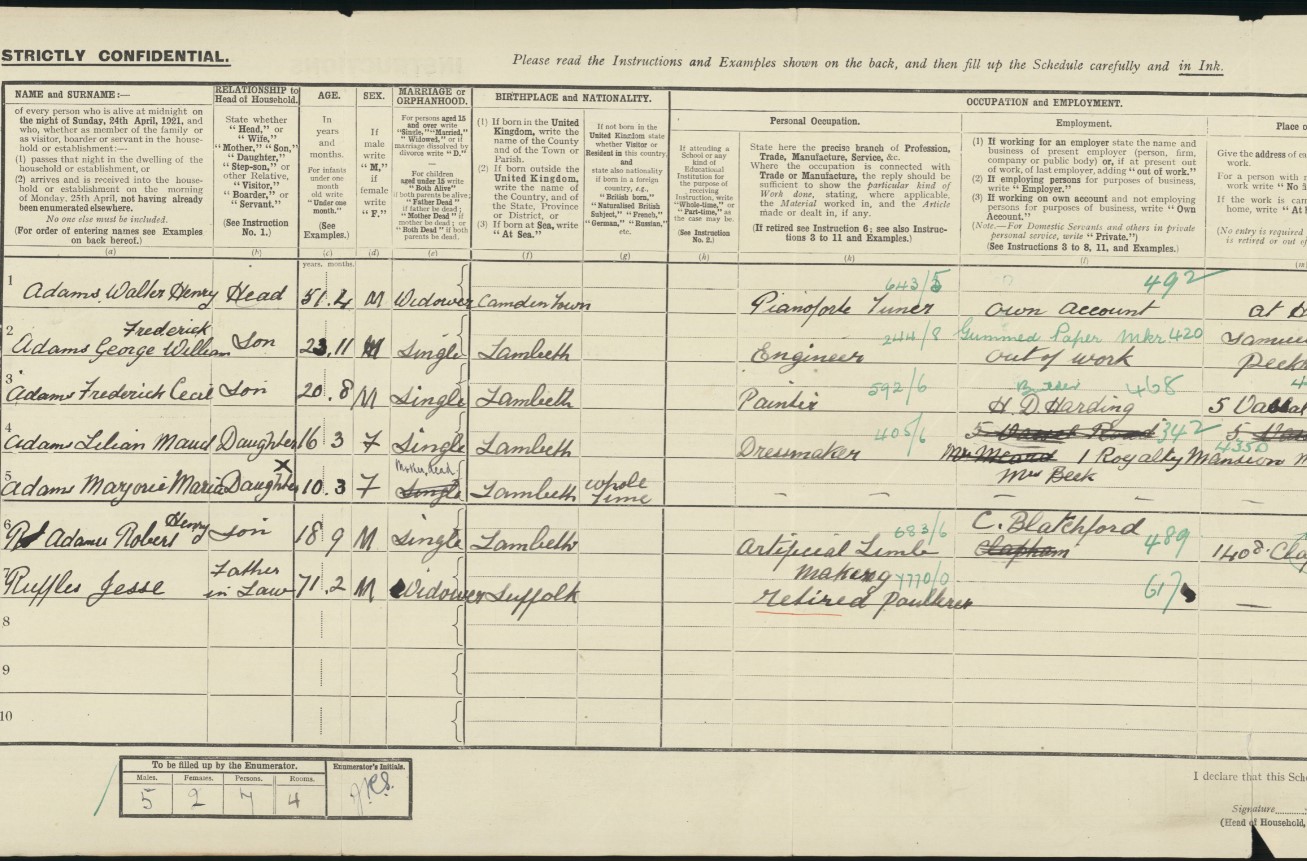 STRICTLY CONFIDENTIAL.
Please read the Instructions and Examples shown on the back, and then fill up the Schedule carefully and in Ink.
NAME and SURNAME:—
of every person who is alive at midnight on
the night of Sunday, 24th April, 1921, and
who, whether as member of the family or
as visitor, boarder or servant in the house-
hold or establishment:—
(1) passes that night in the dwelling of the
household or establishment, or
(2) arrives and is received into the house-
hold or establishment on the morning
of Monday, 25th April, not having already
been enumerated elsewhere.
No one else must be included.
(For order of entering names see Examples
on back hereof.)
(a)
RELATIONSHIP to
Head of Household.
State whether
"Head," or
"Wife,"
"Mother," "Son,"
"Daughter,"
"Step-son," or
other Relative,
"Visitor,"
"Boarder," or
"Servant."
(See Instruction
No. 1.)
(b)
AGE.
In
years
and
months.
For infants
under one
month
old write
"Under one
month."
(See
Examples.)
(c)
years. months.
SEX.
If
male
write
"M,"
if
female
write
"F."
(d)
MARRIAGE or
ORPHANHOOD.
For persons aged 15
and over write
"Single," "Married,"
"Widowed," or if
marriage dissolved by
divorce write "D."
For children
aged under 15 write
"Both Alive"
if both parents be alive;
"Father Dead"
if father be dead;
"Mother Dead" if
mother be dead; or
"Both Dead" if both
parents be dead.
(e)
BIRTHPLACE and NATIONALITY.
(1) If born in the United
Kingdom, write the
name of the County
and of the Town or
Parish.
(2) If born outside the
United Kingdom,
write the name of
the Country, and of
the State, Province
or District, or
(3) If born at Sea, write
"At Sea."
(f)
If not born in the
United Kingdom state
whether Visitor or
Resident in this country,
and
state also nationality
if born in a foreign
country, e.g.,
"British born,"
"Naturalised British
Subject," "French,"
"German," "Russian,"
etc.
(g)
OCCUPATION and EMPLOYMENT.
If attending a
School or any
kind of
Educational
Institution for
the purpose of
receiving
Instruction, write
"Whole-time," or
"Part-time," as
the case may be.
(See Instruction
No. 2.)
(h)
Personal Occupation.
State here the precise branch of Profession,
Trade, Manufacture, Service, &c.
Where the occupation is connected with
Trade or Manufacture, the reply should be
sufficient to show the particular kind of
Work done, stating, where applicable,
the Material worked in, and the Article
made or dealt in, if any.
(If retired see Instruction 6; see also Instruc-
tions 3 to 11 and Examples.)
(k)
Employment.
(1) If working for an employer state the name and
business of present employer (person, firm,
company or public body) or, if at present out
of work, of last employer, adding "out of work."
(2) If employing persons for purposes of business,
write "Employer."
(3) If working on own account and not employing
persons for purposes of business, write "Own
Account."
(Note.—For Domestic Servants and others in private
personal service, write "Private.")
(See Instructions 3 to 8, 11, and Examples.)
(l)
Place o
Give the address of e
work.
For a person with n
work write "No
If the work is car
home, write "At
(No entry is required
is retired or out of
(m
643/5 492
1 Adams, Walter Henry Head 51. 4 M Widower Camden Town Pianoforte Tuner own account at
Frederick 244/8 Gummed Paper Mkr 420
2 Adams George William Son 23. 11 M Single Lambeth Engineer out of work Peck
592/6 468
3 Adams Frederick Cecil Son 20. 8 M Single Lambeth Painter H. D. Harding 5
405/6 342
4 Adams Lilian Maud Daughter 16 3 F Single Lambeth Dressmaker 1 Royalty Mansion
4350
5 Adams Marjorie Maria Daughter 10. 3 F Single Lambeth whole time Mrs Beck
Henry 683/6 C. Blatchford 489
6 Adams Robert Son 18 9 M Single Lambeth Artificial Limb Clapham 140
7 Ruffles Jesse Father in Law 71. 2 M Widower Suffolk making
retired Poulterer 617
8
9
10
To be filled up by the Enumerator.
Males. Females. Persons. Rooms.
5 2 7 4
Enumerator's Initials.
I declare that this Sche
Signature
(Head of Household,